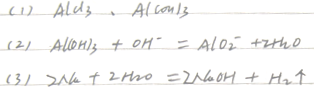 (1) AlCl₃、Al(OH)₃
(2) Al(OH)₃ + OH⁻ = AlO₂⁻ + 2H₂O
(3) 2Na + 2H₂O = 2NaOH + H₂↑